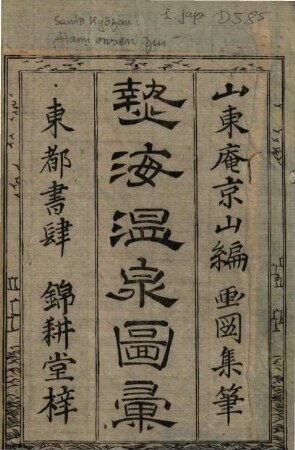 Santō Kyōzan:
Atami onsen zui
L. jap. D 585
山東庵京山編 畫図集筆
熱海温泉圖彙
東都書肆 錦耕堂梓